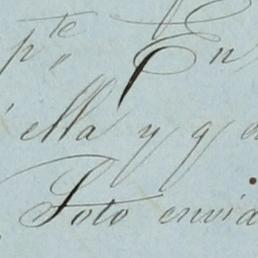 pte En
ella y q
Soto envia